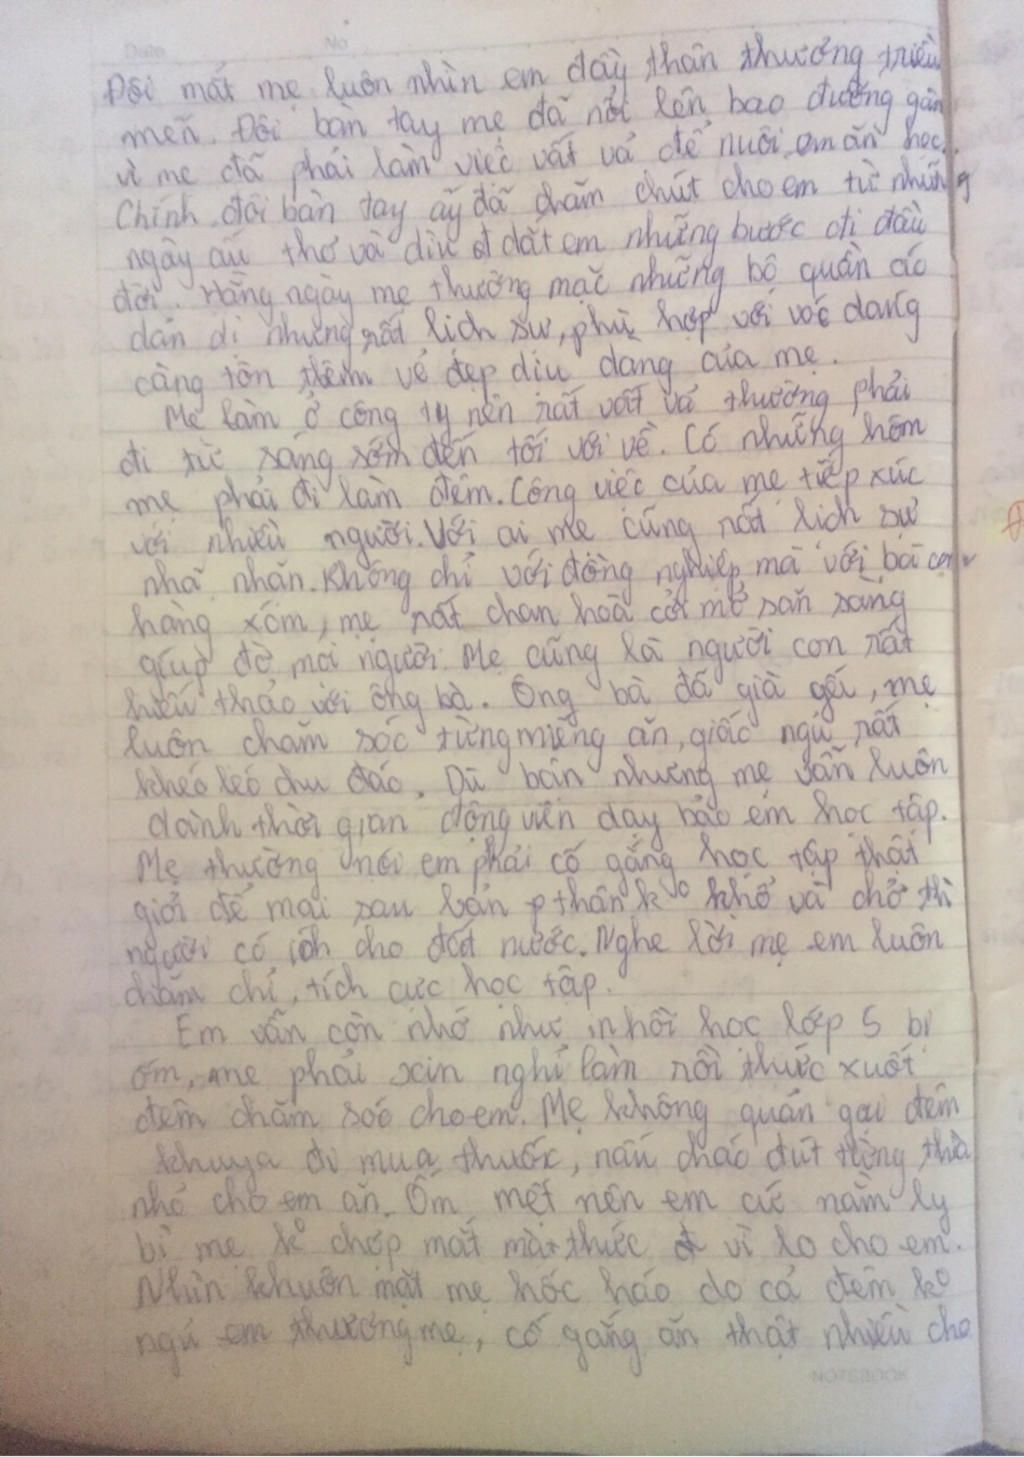 Date No
Đôi mắt mẹ luôn nhìn em đầy thân thương triều
mến. Đôi bàn tay mẹ đã nổi lên bao đường gân
vì mẹ đã phải làm việc vất vả để nuôi em ăn học.
Chính đôi bàn tay ấy đã chăm chút cho em từ những
ngày ấu thơ và dìu dắt em những bước đi đầu
đời. Hằng ngày mẹ thường mặc những bộ quần áo
dản dị nhưng rất lịch sự, phù hợp với vóc dáng
càng tôn thêm vẻ đẹp dịu dàng của mẹ.
Mẹ làm ở công ty nên rất vất vả thường phải
đi từ sáng sớm đến tối với về. Có những hôm
mẹ phải đi làm đêm. Công việc của mẹ tiếp xúc
với nhiều người. Với ai mẹ cũng rất lịch sự
nhã nhặn. Không chỉ với đồng nghiệp mà với bà con
hàng xóm, mẹ rất chan hoà cởi mở sẵn sàng
giúp đỡ mọi người. Mẹ cũng là người con rất
hiếu thảo với ông bà. Ông bà đã già yếu, mẹ
luôn chăm sóc từng miếng ăn, giấc ngủ rất
khéo léo chu đáo. Dù bận nhưng mẹ vẫn luôn
dành thời gian động viên dạy bảo em học tập.
Mẹ thường nói em phải cố gắng học tập thật
giỏi để mai sau bản thân k° khổ và chở thì
người có ích cho đất nước. Nghe lời mẹ em luôn
chăm chỉ, tích cực học tập.
Em vẫn còn nhớ như in hồi học lớp 5 bị
ốm, mẹ phải xin nghỉ làm rồi thức xuốt
đêm chăm sóc cho em. Mẹ không quản gại đêm
khuya đi mua thuốc, nấu cháo đút từng thìa
nhỏ cho em ăn. Ốm mệt nên em cứ nằm ly
bì mẹ k° chợp mắt mà thức vì lo cho em.
Nhìn khuôn mặt mẹ hốc háo do cả đêm k°
ngủ em thương mẹ, cố gắng ăn thật nhiều cho
NOTEBOOK